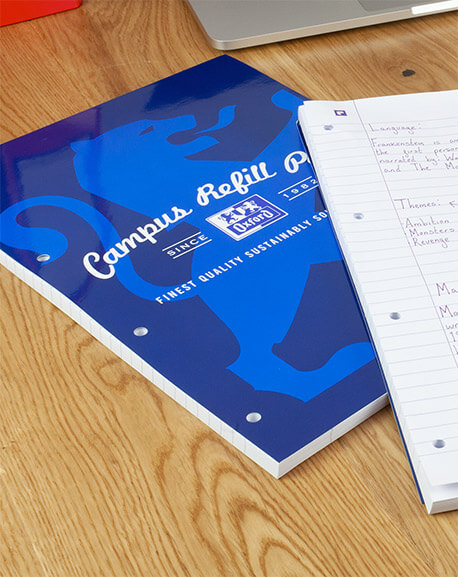 Campus Refill P
SINCE
Oxford
1982
FINEST QUALITY SUSTAINABLY SO
Language:
Frankenstein is
the first perso
narrated by
and The
Themes:
Ambition
Monsters
Revenge
Ma